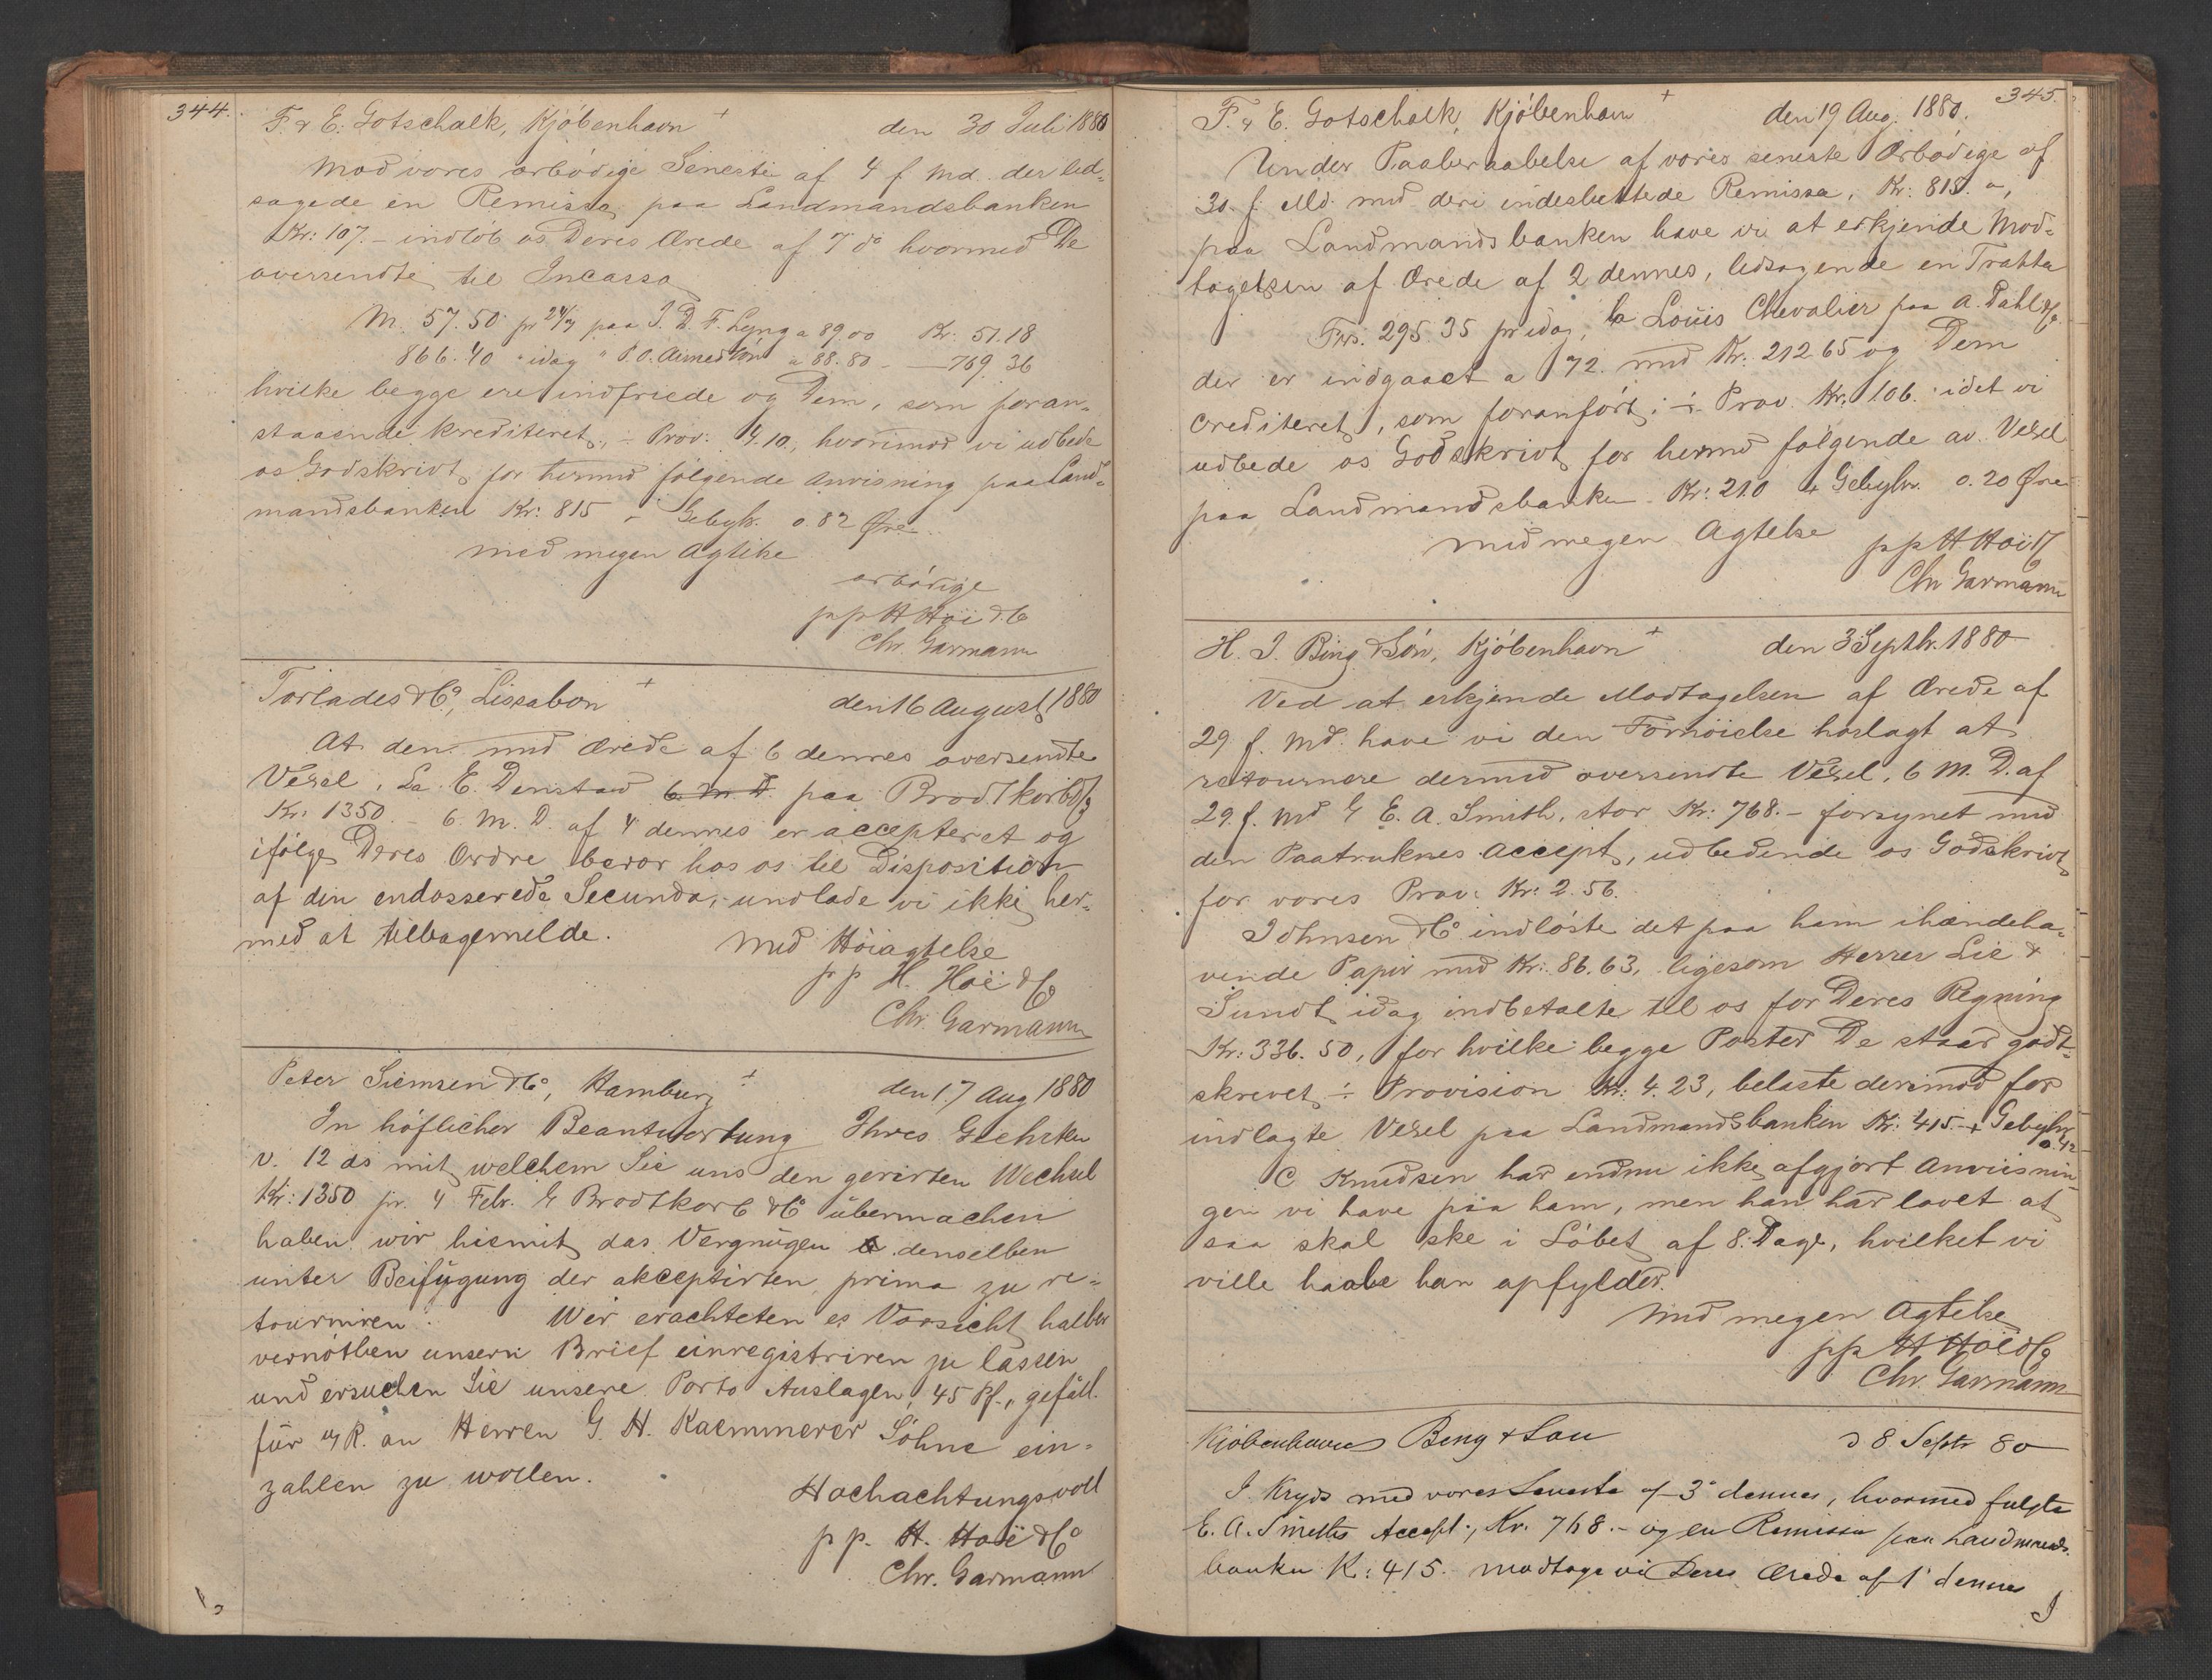 344.
F. & E. Gotschalk, Kjöbenhavn + den 30 Juli 1880
Mod vores ærbödige Seneste af 4 f. Md. der led-
sagede en Remissa paa Landmandsbanken
Kr: 107.- indlöb os Deres Ærede af 7 do hvormed De
oversendte til Incasso
M. 57.50 pr 24/7 paa J. D. F. Lyng a 89,00 Kr: 51.18
866.40 " idag " P. O. a 88.80 - — 769.36
hvilke begge ere indfriede og Dem, som foran-
staaende krediteret, ÷ Prov: 4.10, hvorimod vi udbede
os Godskrivt for hermed fölgende Anvisning paa Land-
mandsbanken Kr: 815 - Gebyhr. 0.82 Øre.
med megen Agtelse
ærbödige
pp H Höe & Co
Chr. Garmann
Torlades & Co, Lissabon + den 16 August 1880
At den med Ærede af 6 dennes oversendte
Vexel, La E. Denstad 6 M. D. paa Brodtkorb & Co
Kr: 1350.- 6. M. D. af 4 dennes er accepteret og
ifölge Deres Ordre beror hos os til Disposition
af den endosserede Secunda, undlade vi ikke her-
med at tilbagemelde.
Med Höiagtelse
pp H. Höe & Co
Chr. Garmann
Peter Siemsen & Co, Hamburg + den 17 Aug 1880
In höflicher Beantwortung Ihres Geehrten
v. 12 ds mit welchem Sie uns den girirten Wechsel
Kr: 1350 pr. 4 Febr. Brodtkorb & Co übermachen
haben wir hiemit das Vergnügen denselben
unter Beifügung der akceptirten prima zu re-
tourniren. Wir erachteten es Vorsicht halber
vernöthen unsern Brief einregistriren zu lassen
und ersuchen Sie unsere Porto Auslagen, 45 Pf., gefäll.
für R. an Herren G. H. Kaemmerer Söhne ein-
zahlen zu wollen.
Hochachtungsvoll
pp. H. Höe & Co
Chr. Garmann
345.
F. & E. Gotschalk, Kjöbenhavn + den 19 Aug. 1880.
Under Paaberaabelse af vores seneste Ærbödige af
30. f. Md. med deri indesluttede Remissa, Kr: 815.
paa Landmandsbanken have vi at erkjende Mod-
tagelsen af Ærede af 2 dennes, ledsagende en Tratta
Frs. 295.35 pr idag, La Louis Chevalier paa A. Dahl
der er indgaaet a 72. med Kr. 212.65 og Dem
crediteret, som foranfört, ÷ Prov. Kr. 1.06. idet vi
udbede os Godskrivt for hermed fölgende av. Vexel
paa Landmandsbanken Kr: 210 + Gebyhr. 0.20 Øre
med megen Agtelse
pp H Höe & Co
Chr Garmann
H. J. Bing & Sön, Kjöbenhavn + den 3 Septbr. 1880
Ved at erkjende Modtagelsen af Ærede af
29 f. Md. have vi den Fornöielse hoslagt at
retournere dermed oversendte Vexel, 6 M. D. af
29 f. Md E. A. Smith, stor Kr: 768.- forsynet med
den Paatruknes Accept, udbedende os Godskrivt
for vores Prov: Kr: 2.56.
Johnsen & Co indlöste det paa ham ihændeha-
vende Papir med Kr: 86.63, ligesom Herrer Lie &
Sundt idag indbetalte til os for Deres Regning
Kr: 336.50, for hvilke begge Poster De staar godt-
skrevet ÷ Provision Kr: 4.23, belaste derimod for
indlagte Vexel paa Landmandsbanken Kr: 415.- + Gebyhr
0.42
C Knudsen har endnu ikke afgjort Anviisnin-
gen vi have paa ham, men han har lovet at
saa skal ske i Löbet af 8. Dage, hvilket vi
ville haabe han opfylder.
med megen Agtelse
pp H Höe & Co
Chr. Garmann
Kjöbenhavn Bing & Sön d 8 Septr 80
I Kryds med vores Seneste af 3 dennes, hvormed fulgte
E. A. Smiths Accept, Kr. 768.- og en Remissa paa Landmands-
banken K: 415. modtage vi Deres Ærede af 1 dennes